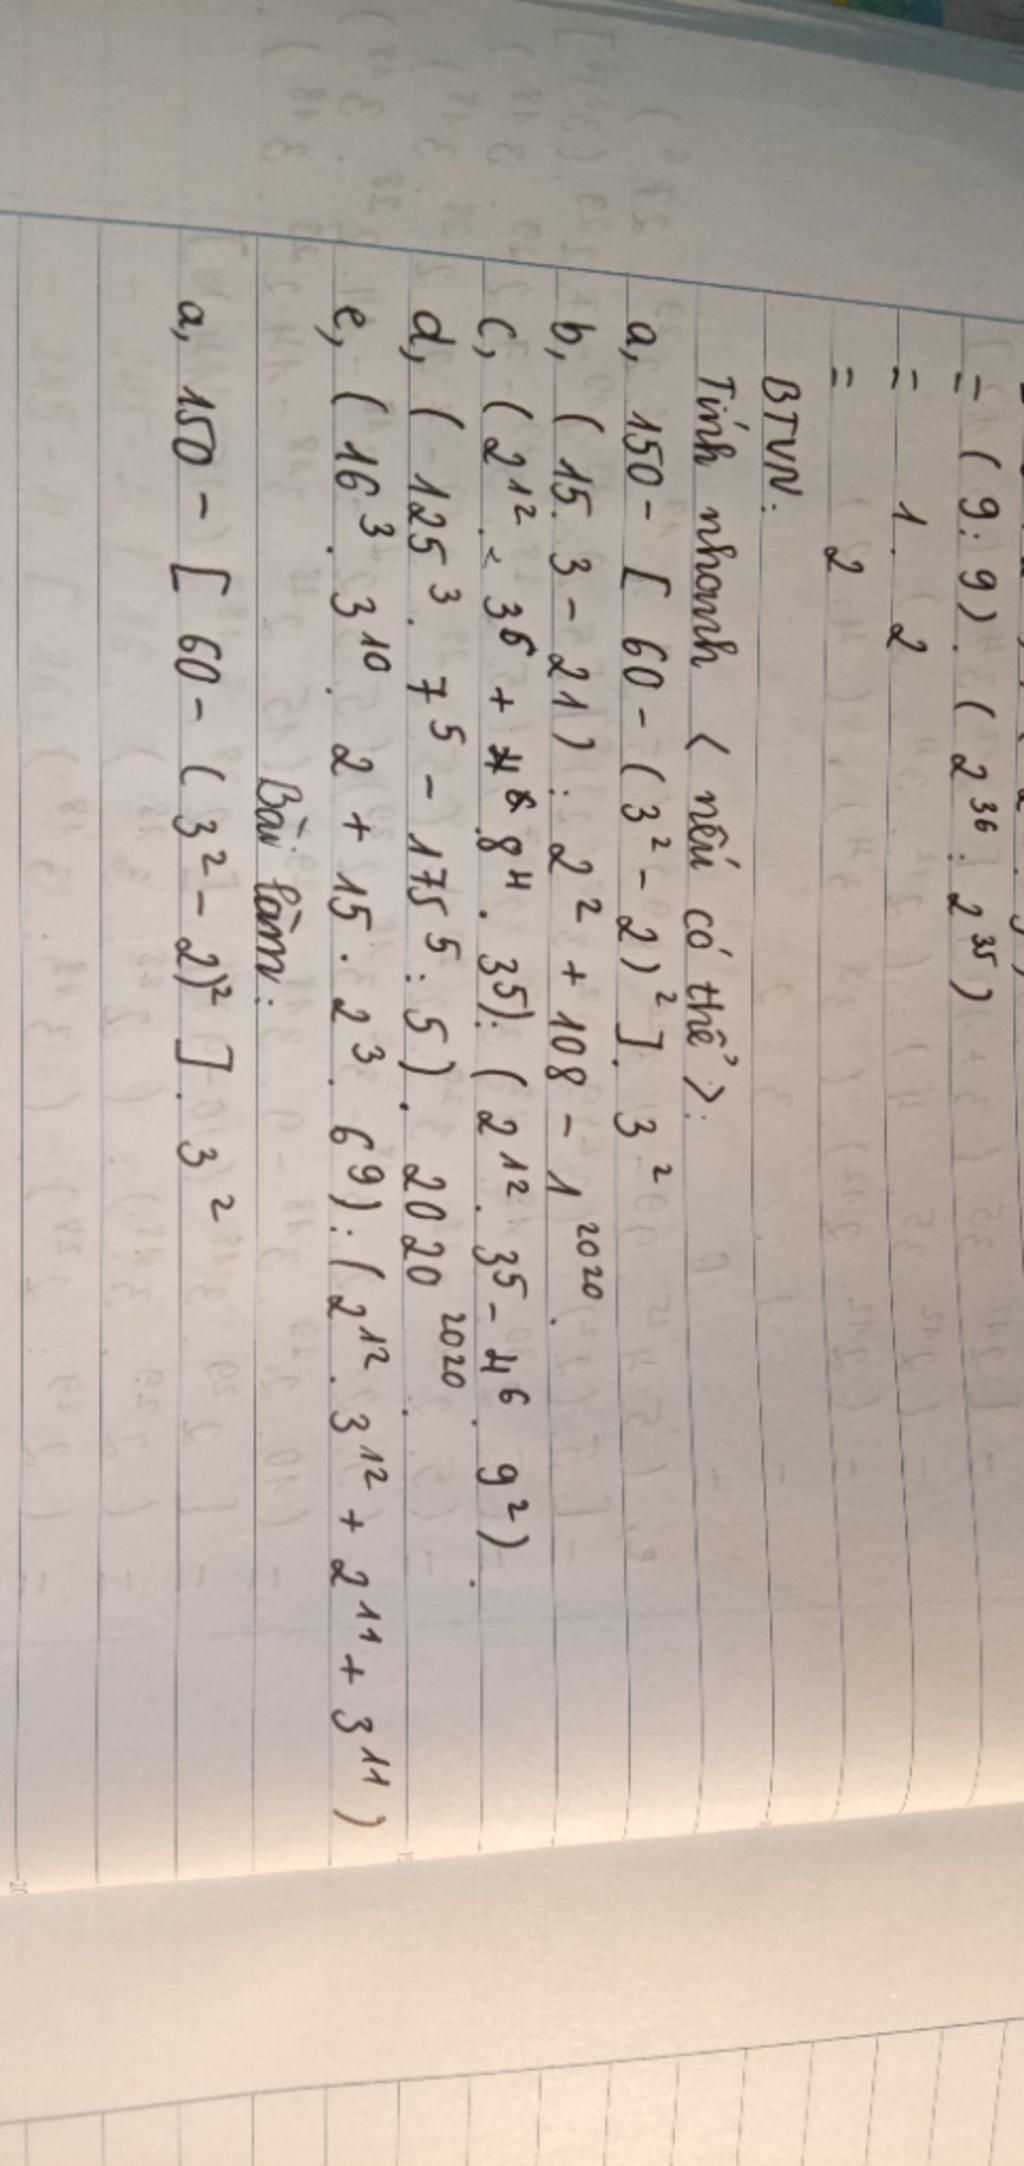 = (9:9). (2³⁶: 2³⁵)
= 1. 2
= 2
BTVN:
Tính nhanh < nếu có thể >:
a, 150 - [ 60 - (3² - 2)² ]. 3²
b, (15. 3 - 21) : 2² + 108 - 1²⁰²⁰.
c, (2¹² . 3⁶ + 8⁴ . 3⁵): (2¹² . 3⁵ - 4⁶ . 9²).
d, (125³. 7⁵ - 175⁵ : 5) . 2020²⁰²⁰.
e, (16³ . 3¹⁰. 2 + 15. 2³. 6⁹): (2¹². 3¹² + 2¹¹ + 3¹¹)
Bài làm:
a, 150 - [ 60 - (3² - 2)² ]. 3²